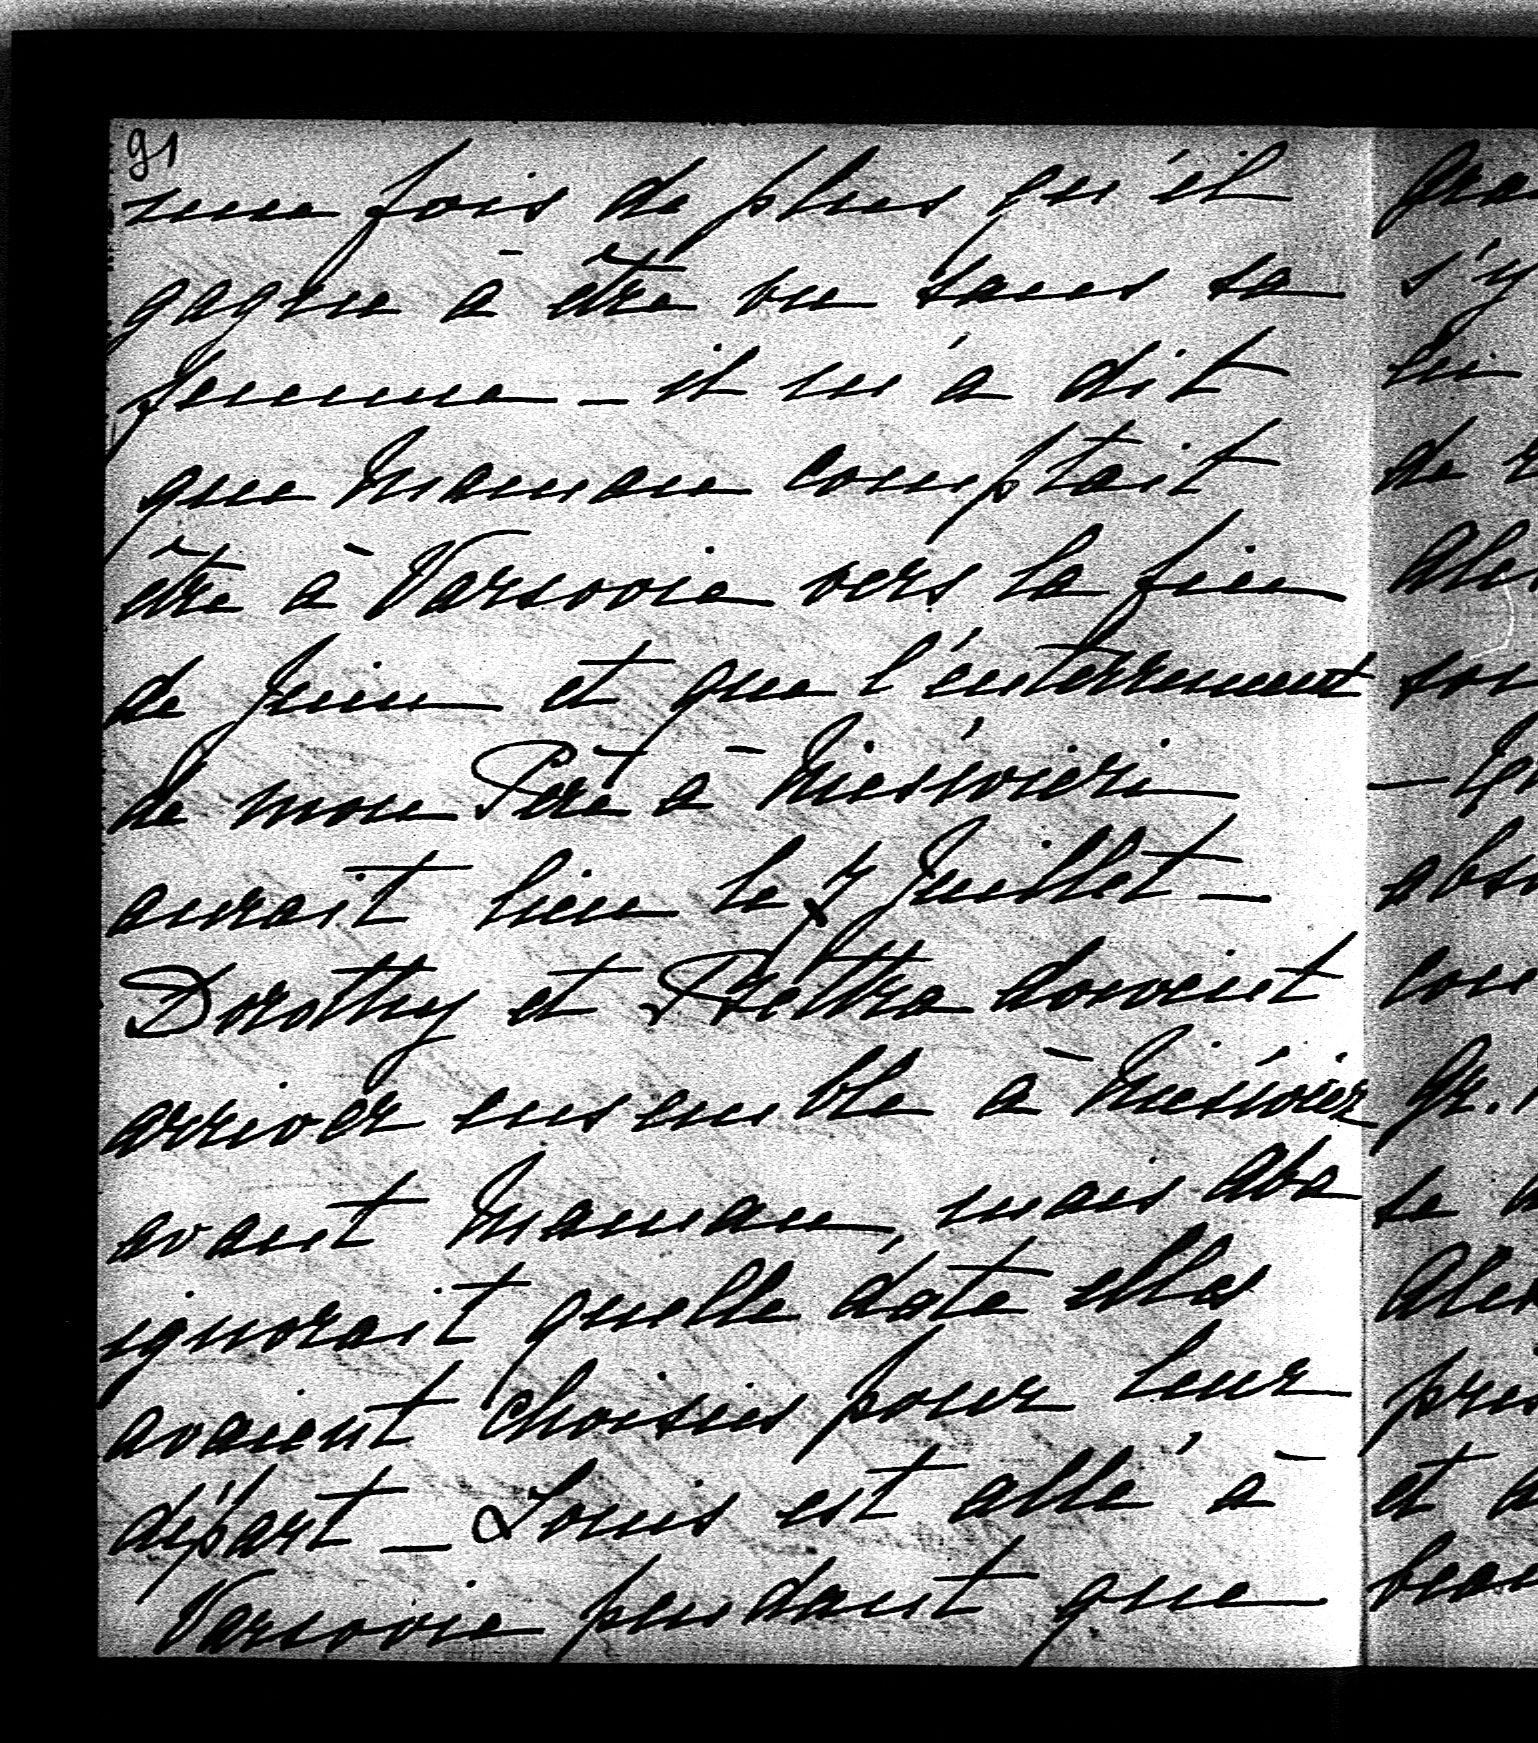 91
une fois de plus qu'il
gagne à être vu sans sa
femme – il m'a dit
que Maman comptait
être à Varsovie vers la fin
de Juin et que l'enterrement
de mon Père à Nieśwież
aurait lieu le 7 Juillet –
Dorothy et Betka doivent
arriver ensemble à Nieśwież
avant Maman, mais Aba
ignorait quelle date elles
avaient choisies pour leur
départ – Louis est allé à
Varsovie pendant que